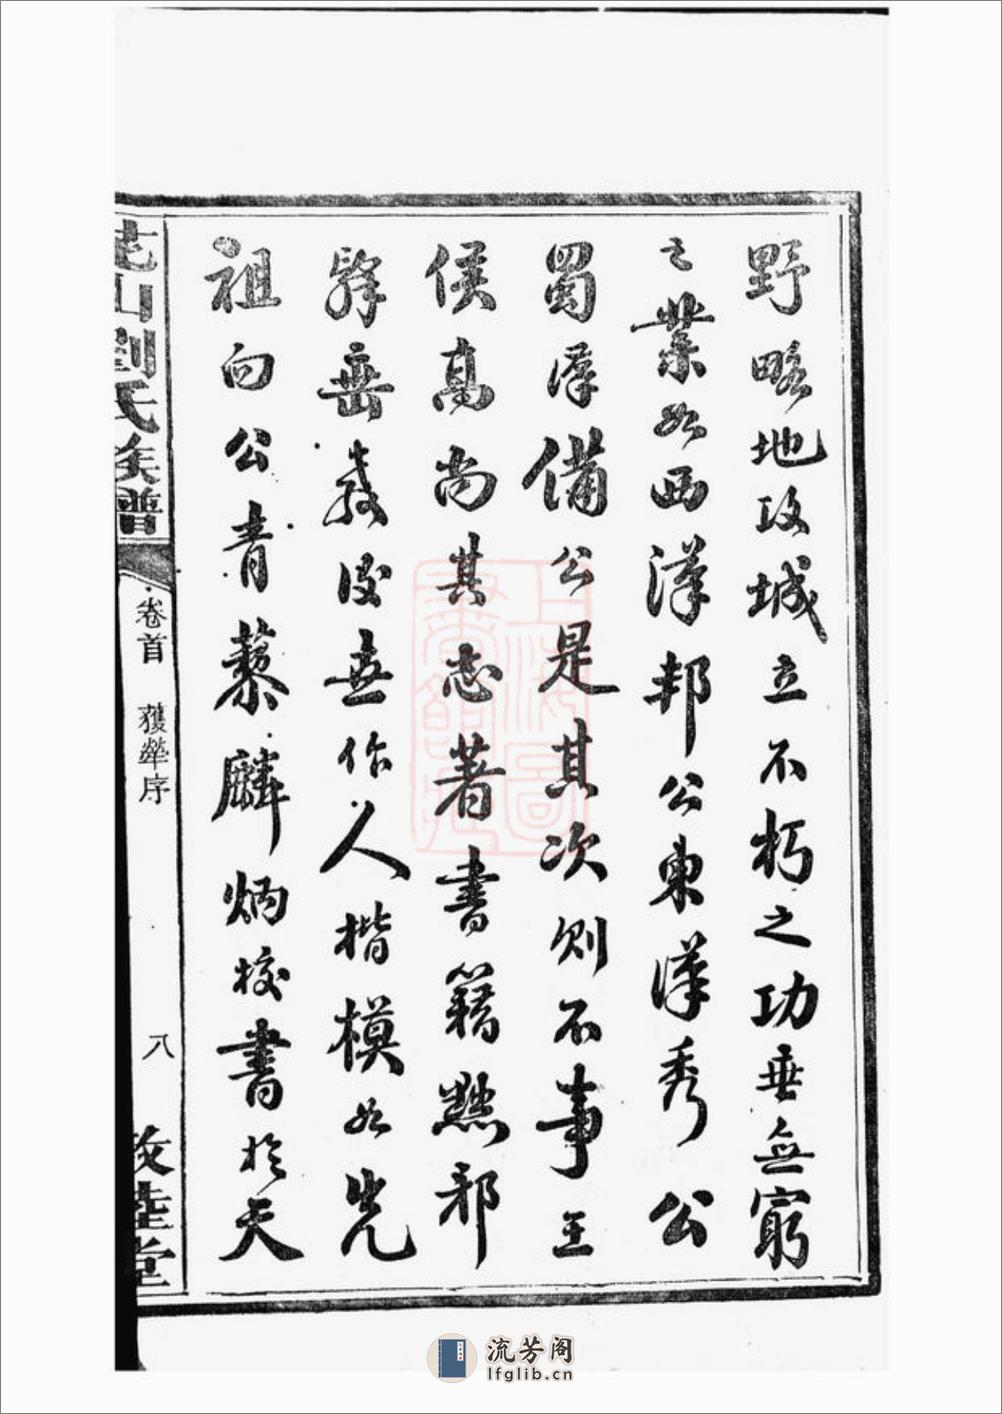 野略地攻城立不朽之功垂無窮
之業如西漢邦公東漢秀公
蜀漢備公是其次則不事王
侯高尚其志著書籍黜邪
辭垂教後世作人楷模如先
祖向公青藜麟炳校書於天
山劉氏族譜
卷首
序
八
敦睦堂
上海圖書館藏
流芳阁
lfglib.cn